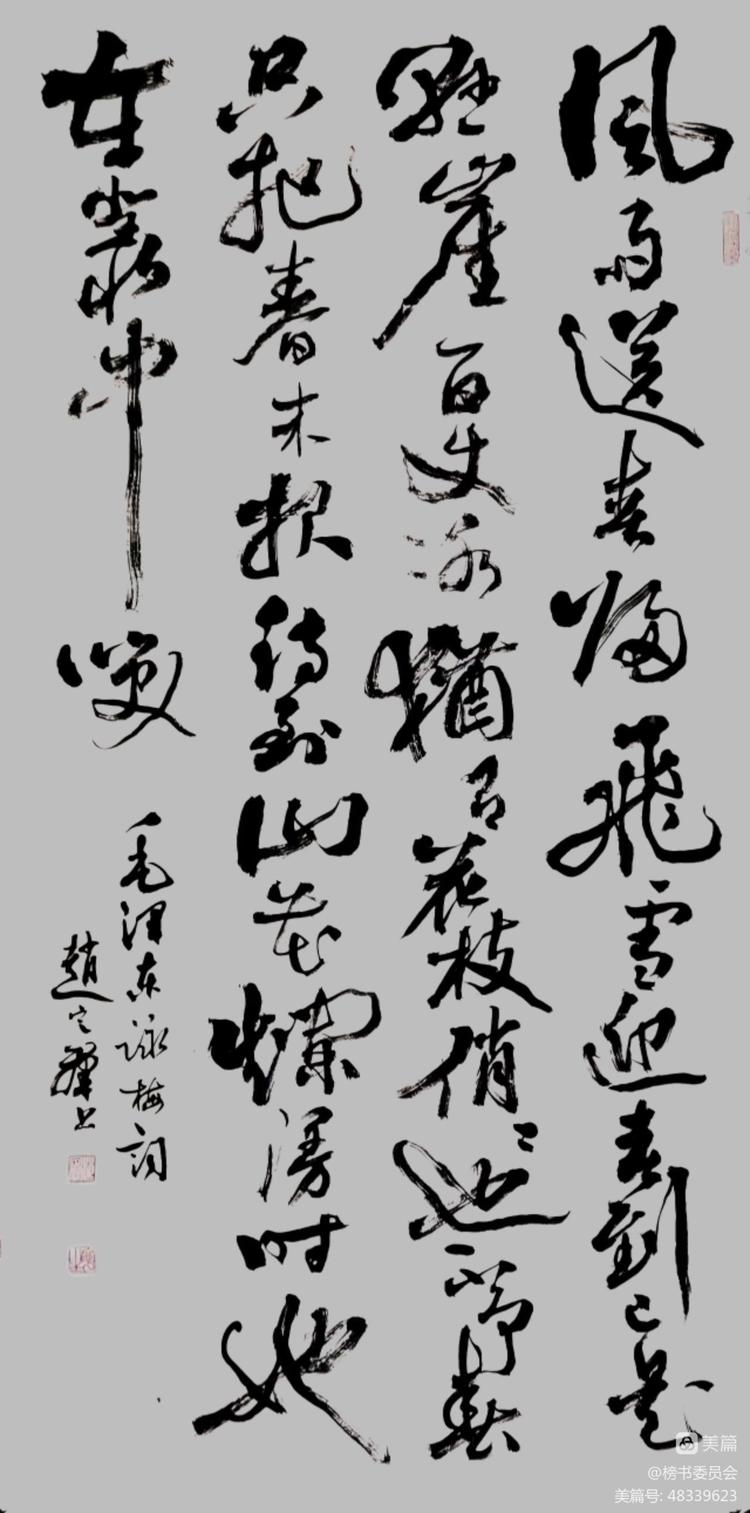 風雨送春歸飛雪迎春到已是
懸崖百丈冰猶有花枝俏々也不争春
只把春来报待到山花爛漫时她
在叢中笑
毛泽东詠梅詞
趙
美篇
@榜书委员会
美篇号: 48339623